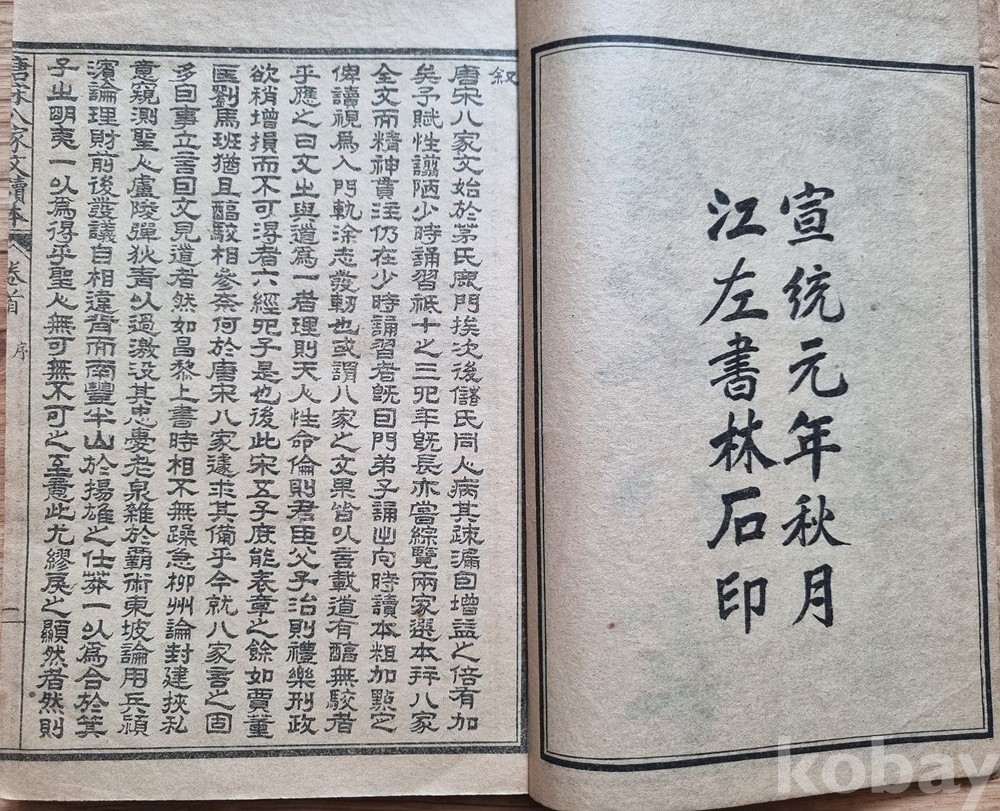 宣統元年秋月
江左書林石印
叙
唐宋八家文始於茅氏鹿門挨次後儲氏同人病其疎漏自增益之倍有加
矣予賦性譾陋少時誦習祗十之三四年旣長亦嘗綜覽兩家選本幷八家
全文而精神貫注仍在少時誦習者旣曰門弟子誦㞢向時讀本粗加點定
俾讀視爲入門軌涂志發軔也或謂八家之文果皆㕥言載道有醕無駮者
乎應之曰文㞢與道爲一者理則天人性命倫則君臣父子治則禮樂刑政
欲稍增損而不可得者六經孔子是也後此宋五子庶能表章之餘如賈董
匡劉馬班猶且醕駮相參奈何於唐宋八家遽求其備乎今就八家言之固
多自事立言曰文見道者然如昌黎上書時相不無躁急柳州論封建挾私
意窺測聖人廬陵彈狄靑㕥過激没其忠憂老泉雜於霸術東坡論用兵潁
濱論理財前後發議自相違背而南豐半山於揚雄之仕莽一㕥爲合於箕
子㞢明夷一㕥爲得乎聖人無可無不可之至意此尤繆戾之顯然者然則
唐宋八家文讀本
卷首
序
一
kobay